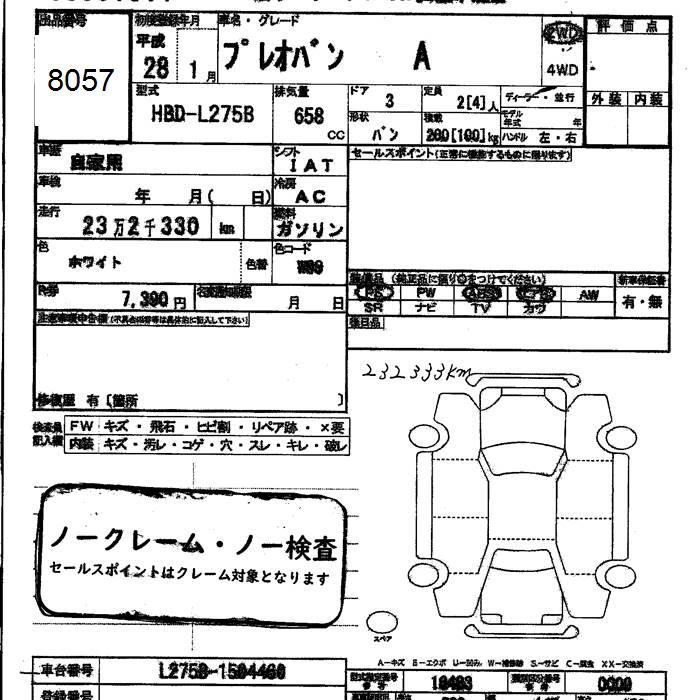 出品番号 初度登録年月 車名・グレード 評価点
8057 平成 28 1月 プレオバン A 2WD 4WD
型式 排気量 ドア 定員 ディーラー・並行 外装 内装
HBD-L275B 658 CC 3 2[4]人
形状 積載 モデル年式 年
バン 200[100]kg ハンドル 左・右
車歴 シフト セールスポイント(正常に機能するものに限ります)
自家用 IAT
車検 冷房
年 月( 日) AC
走行 燃料
23万2千330 km ガソリン
色 色コード
ホワイト 色替 W09
装備品 (純正品に限り○をつけてください) 新車保証書
PS PW ABS エアB AW 有・無
SR ナビ TV カワ
R券 7,390円 名義変更期限 月 日
後日品
注意事項申告欄(不具合箇所等は具体的に記入して下さい)
修復歴 有〔箇所 〕
232333km
検査員記入欄 FW キズ・飛石・ヒビ割・リペア跡・×要
内装 キズ・汚レ・コゲ・穴・スレ・キレ・破レ
ノークレーム・ノー検査
セールスポイントはクレーム対象となります
スペア
A−キズ E−エクボ U−凹み W−補修跡 S−サビ C−腐食 XX−交換済
車台番号 L275B-1504460 型式指定番号 16483 類別区分番号
登録番号